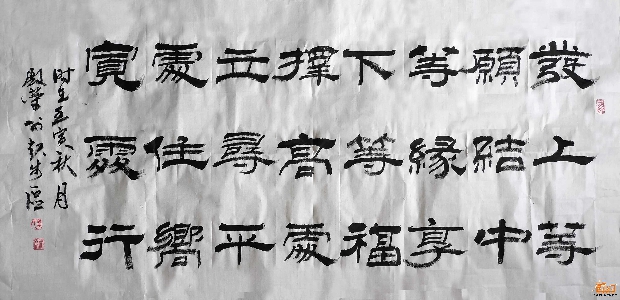 發上等
願結中
等緣享
下等福
擇高處
立尋平
處住嚮
寬處行
时在壬寅秋月